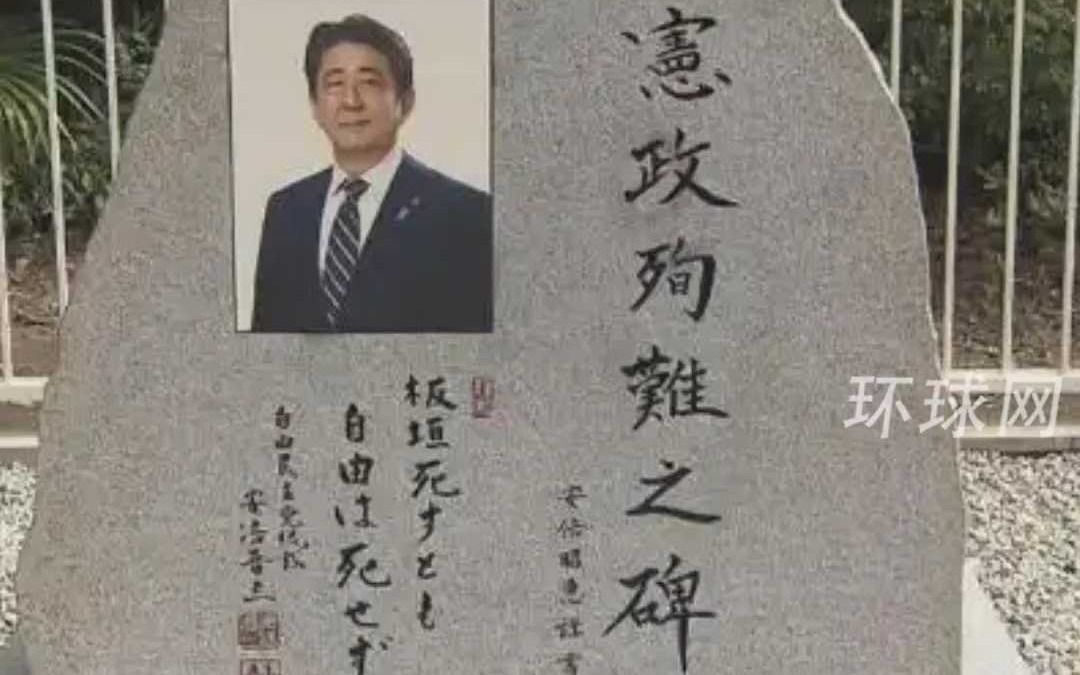 憲政殉難之碑
安倍昭恵謹書
板垣死すとも
自由は死せず
自由民主党総裁
安倍晋三
环球网